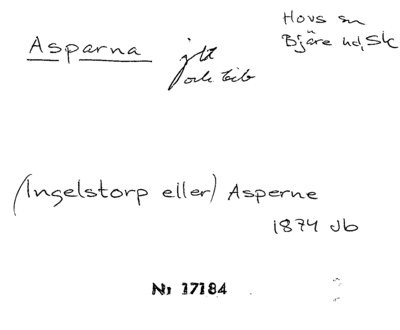 Asparna
Hovs sn
Bjäre hd, Sk
(Ingelstorp eller) Asperne
1874 Jb
Nr 17184